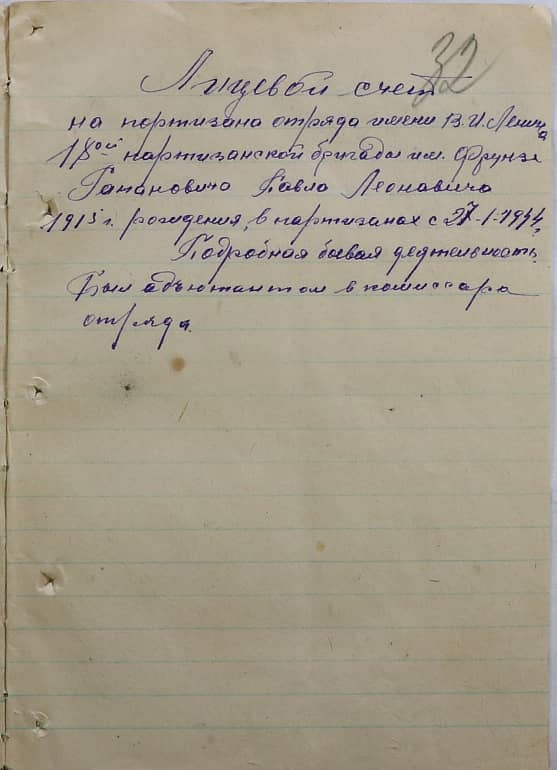 32
Лицевой счет
на портизана отряда имени В.И. Ленина
18ой партизанской бригады им. Фрунзе
Гапановича Павла Леонавича
1915 г. рождения, в партизанах с 27-1-1944.
Подробная боевая деятельность.
Был адъютантом в комиссара
отряда.